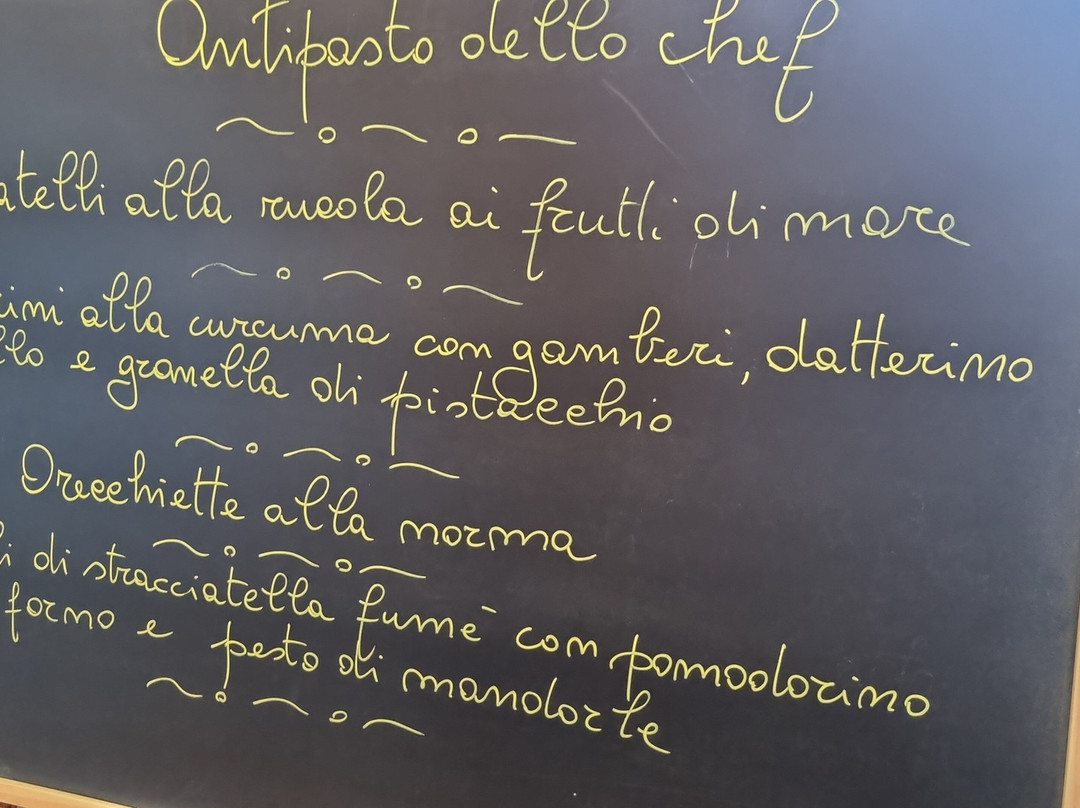 Antipasto dello chef
atelli alla rucola ai frutti di mare
imi alla curcuma con gamberi, datterino
llo e granella di pistacchio
Orecchiette alla norma
i di stracciatella fumè con pomodorino
forno e pesto di mandorle